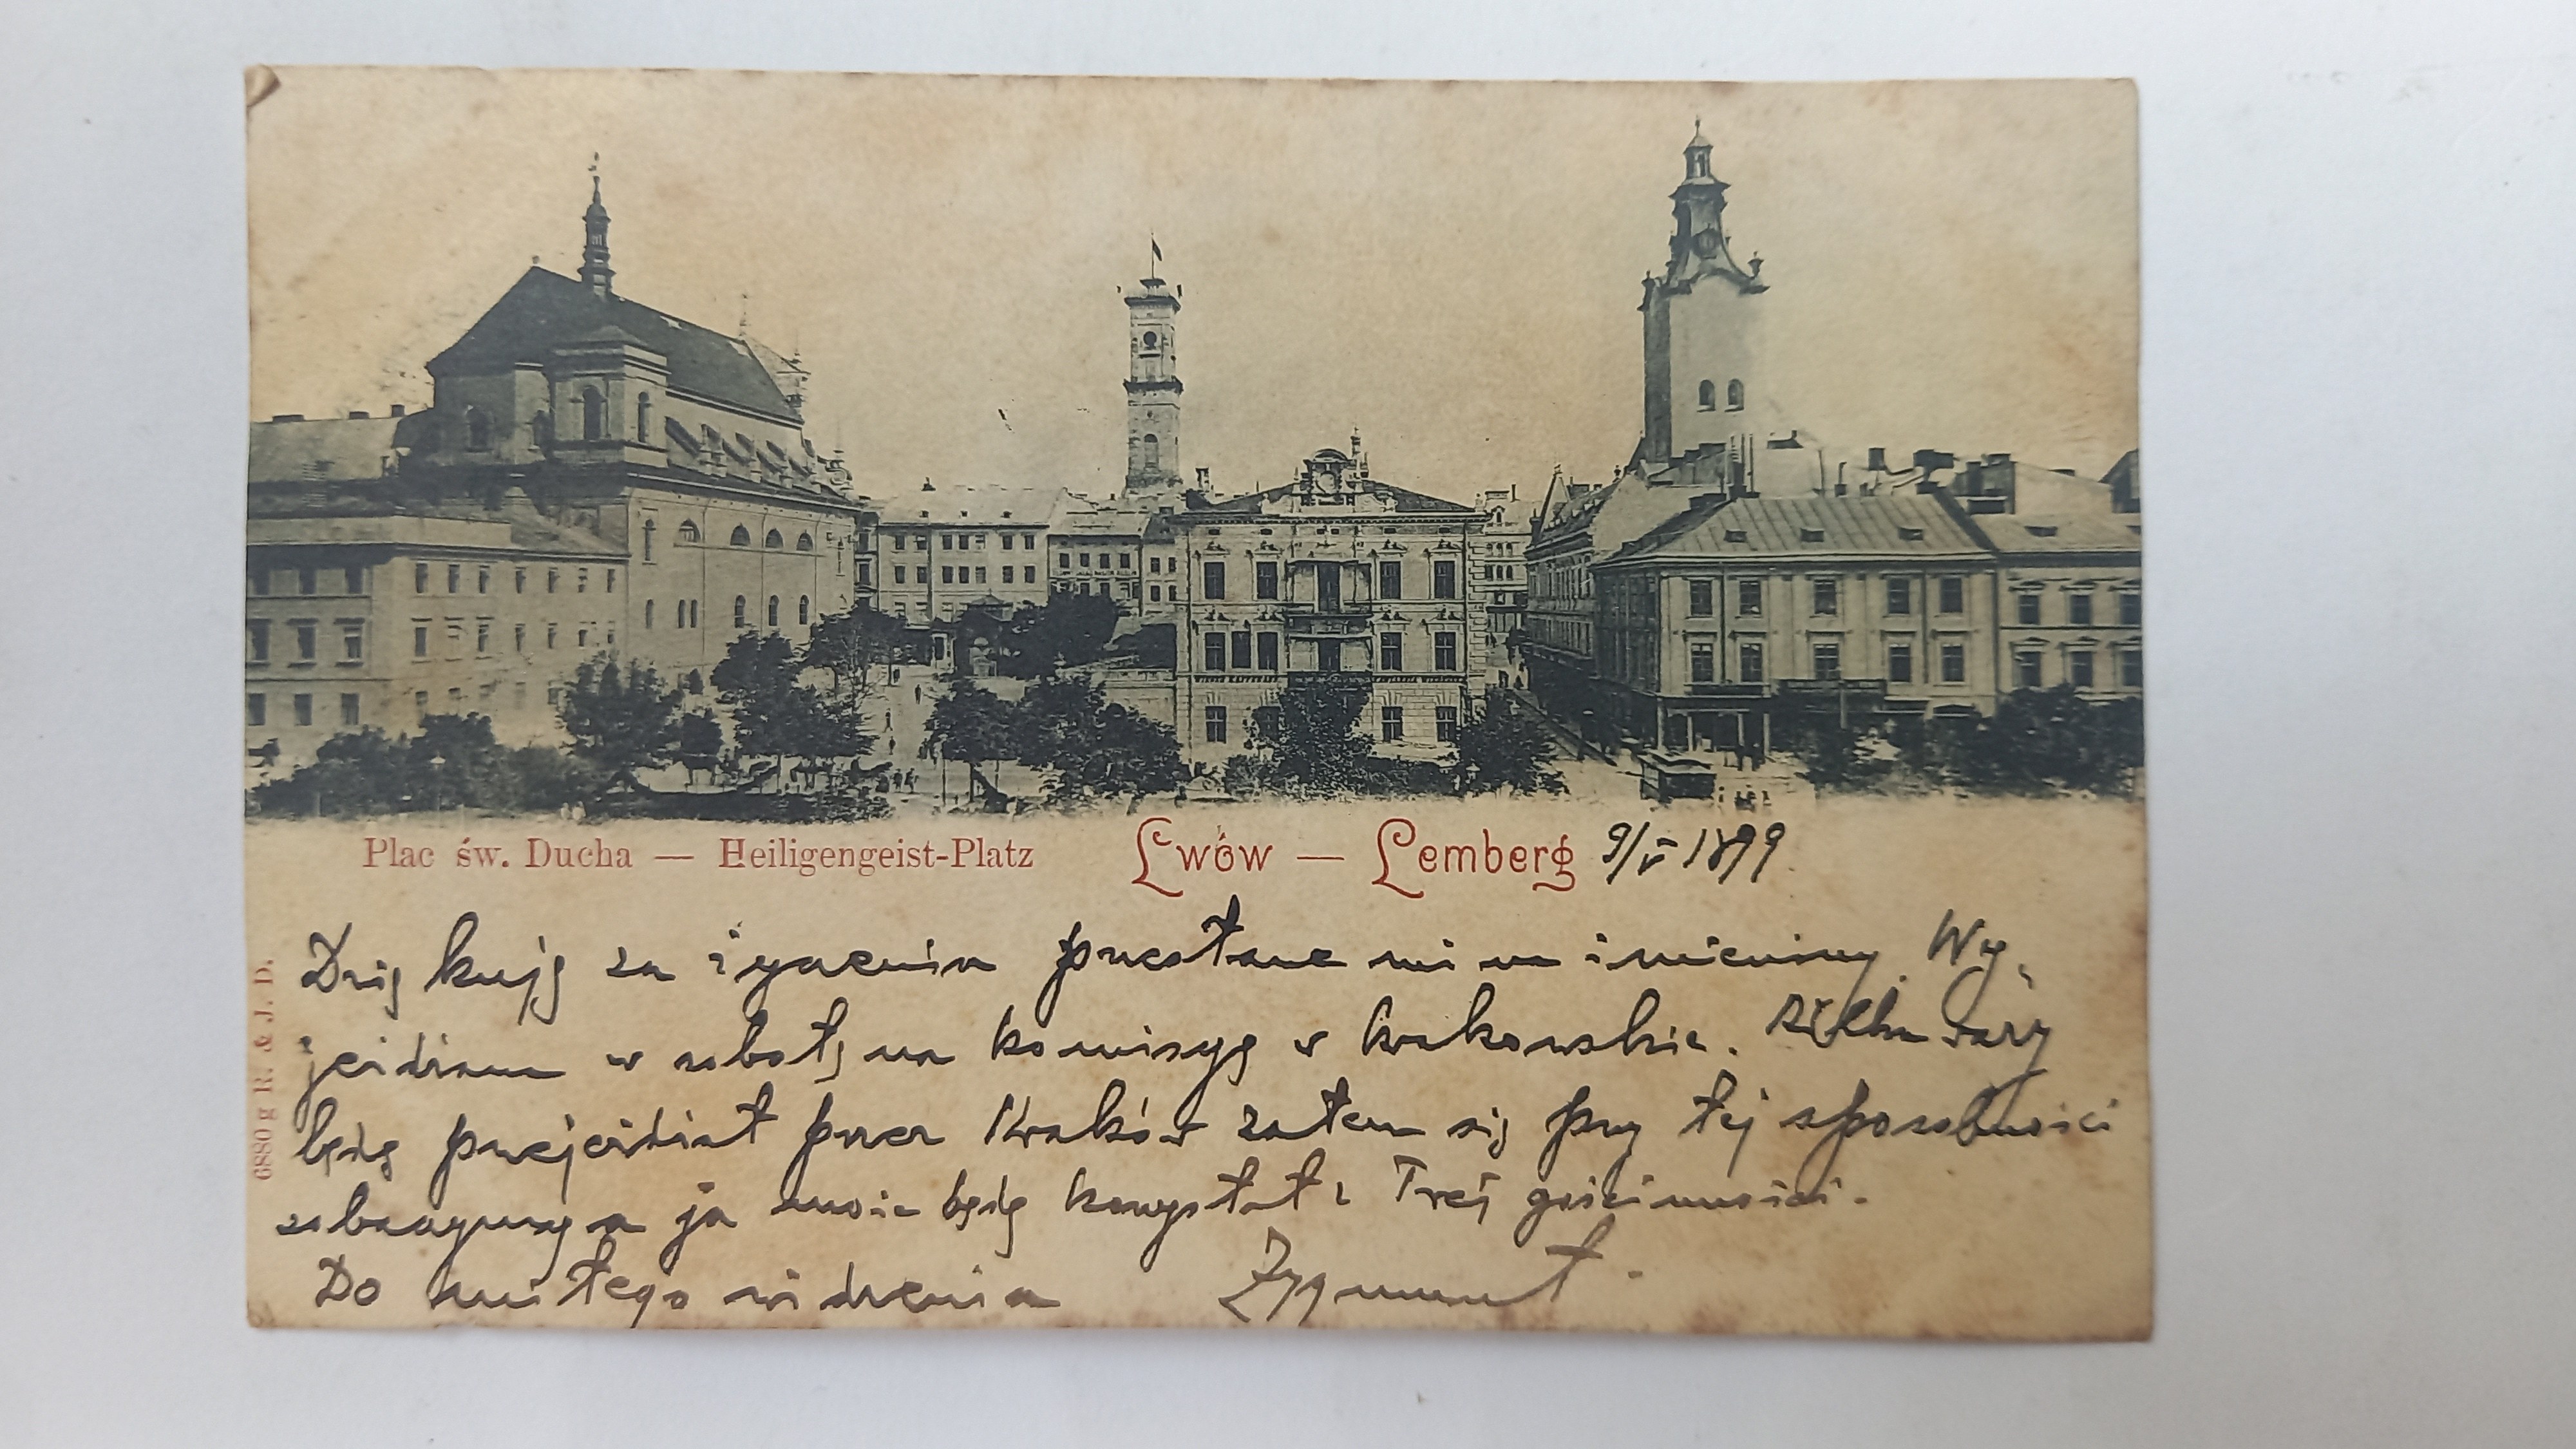 Plac św. Ducha — Heiligengeist-Platz Lwów — Lemberg 9/V 1899
6880 g R. & J. D.
Dziękuję za życzenia przesłane mi na imieniny. Wy-
jeżdżam w sobotę na komisyę w Krakowskie. Kilka razy
będę przejeżdżał przez Kraków zatem się przy tej sposobności
zobaczymy a ja może będę korzystał z Twej gościnności.
Do miłego widzenia Zygmunt.